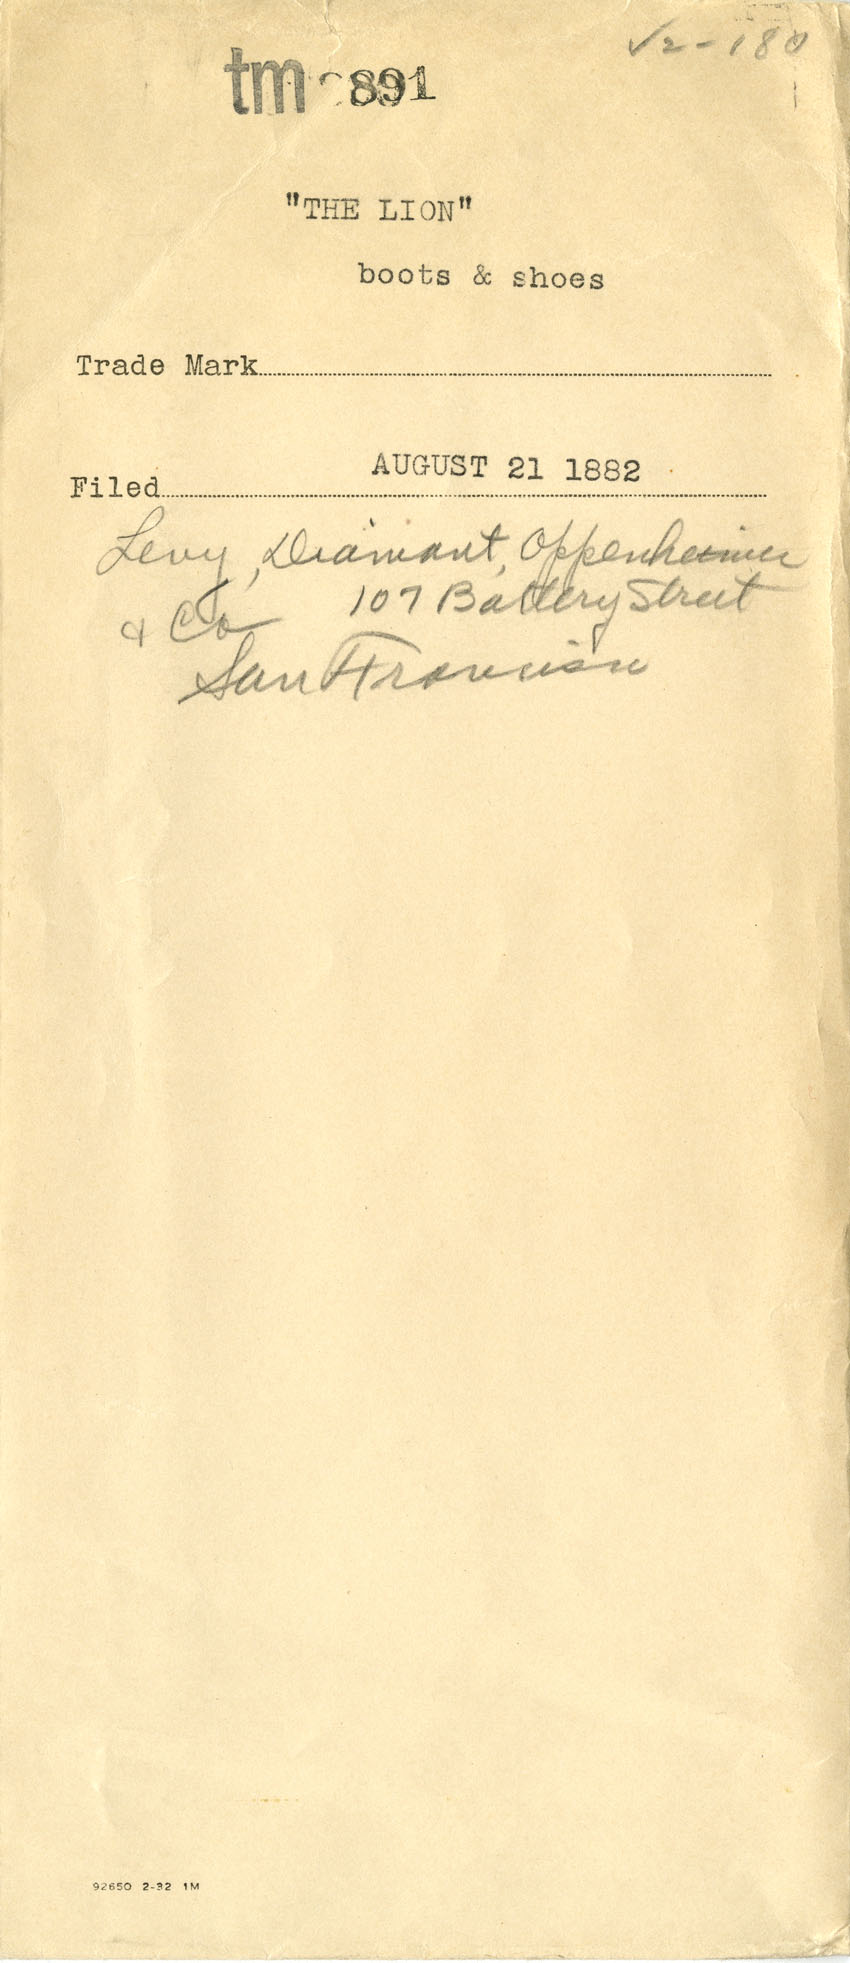 √2-180
tm 891
"THE LION"
boots & shoes
Trade Mark
AUGUST 21 1882
Filed
Levy, Diamant, Oppenheimer
& Co 107 Battery Street
San Francisco
92650 2-32 1M